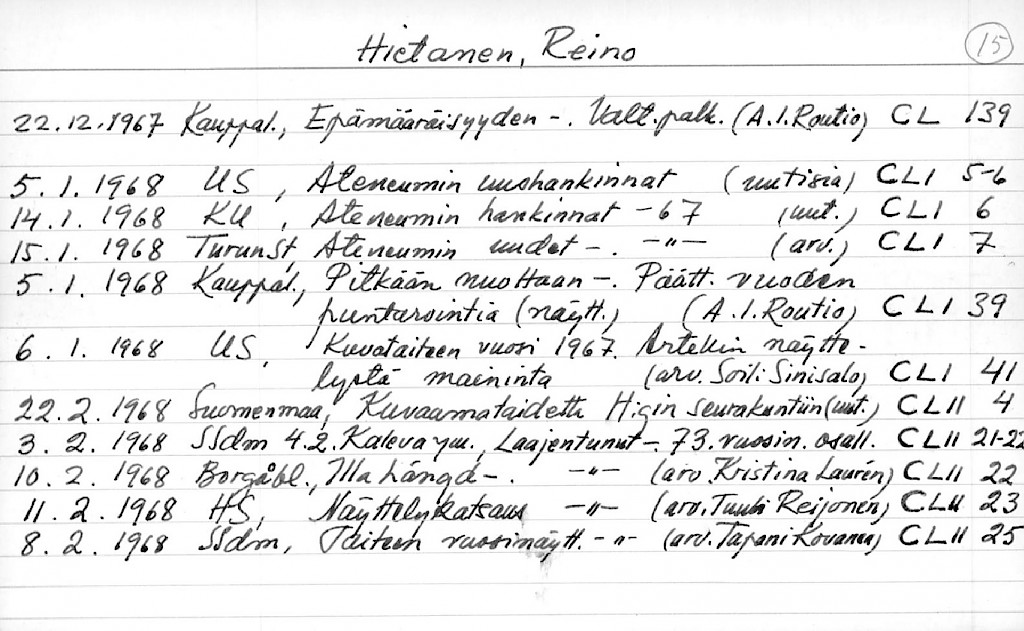 Hietanen, Reino 15
22.12.1967 Kauppal., Epämääräisyyden -. Valt.palk. (A.I.Routio) CL 139
5.1.1968 US, Ateneumin uushankinnat (uutisia) CLI 5-6
14.1.1968 KU, Ateneumin hankinnat -67 (uut.) CLI 6
15.1.1968 TurunSt, Ateneumin uudet -. -"- (arv.) CLI 7
5.1.1968 Kauppal., Pitkään nuottaan -. Päätt. vuoden
puntarointia (näytt.) (A.I.Routio) CLI 39
6.1.1968 US, Kuvataiteen vuosi 1967. Artekin näytte-
lystä maininta (arv. Soili Sinisalo) CLI 41
22.2.1968 Suomenmaa, Kuvaamataidetta H:gin seurakuntiin (uut.) CLII 4
3.2.1968 SSdm 4.2. Kaleva ym., Laajentunut -. 73. vuosin. osall. CLII 21-22
10.2.1968 Borgåbl., Illa hängd -. -"- (arv. Kristina Laurén) CLII 22
11.2.1968 HS, Näyttelykatsaus -"- (arv. Tuuli Reijonen) CLII 23
8.2.1968 SSdm, Taiteen vuosinäytt. -"- (arv. Tapani Kovanen) CLII 25